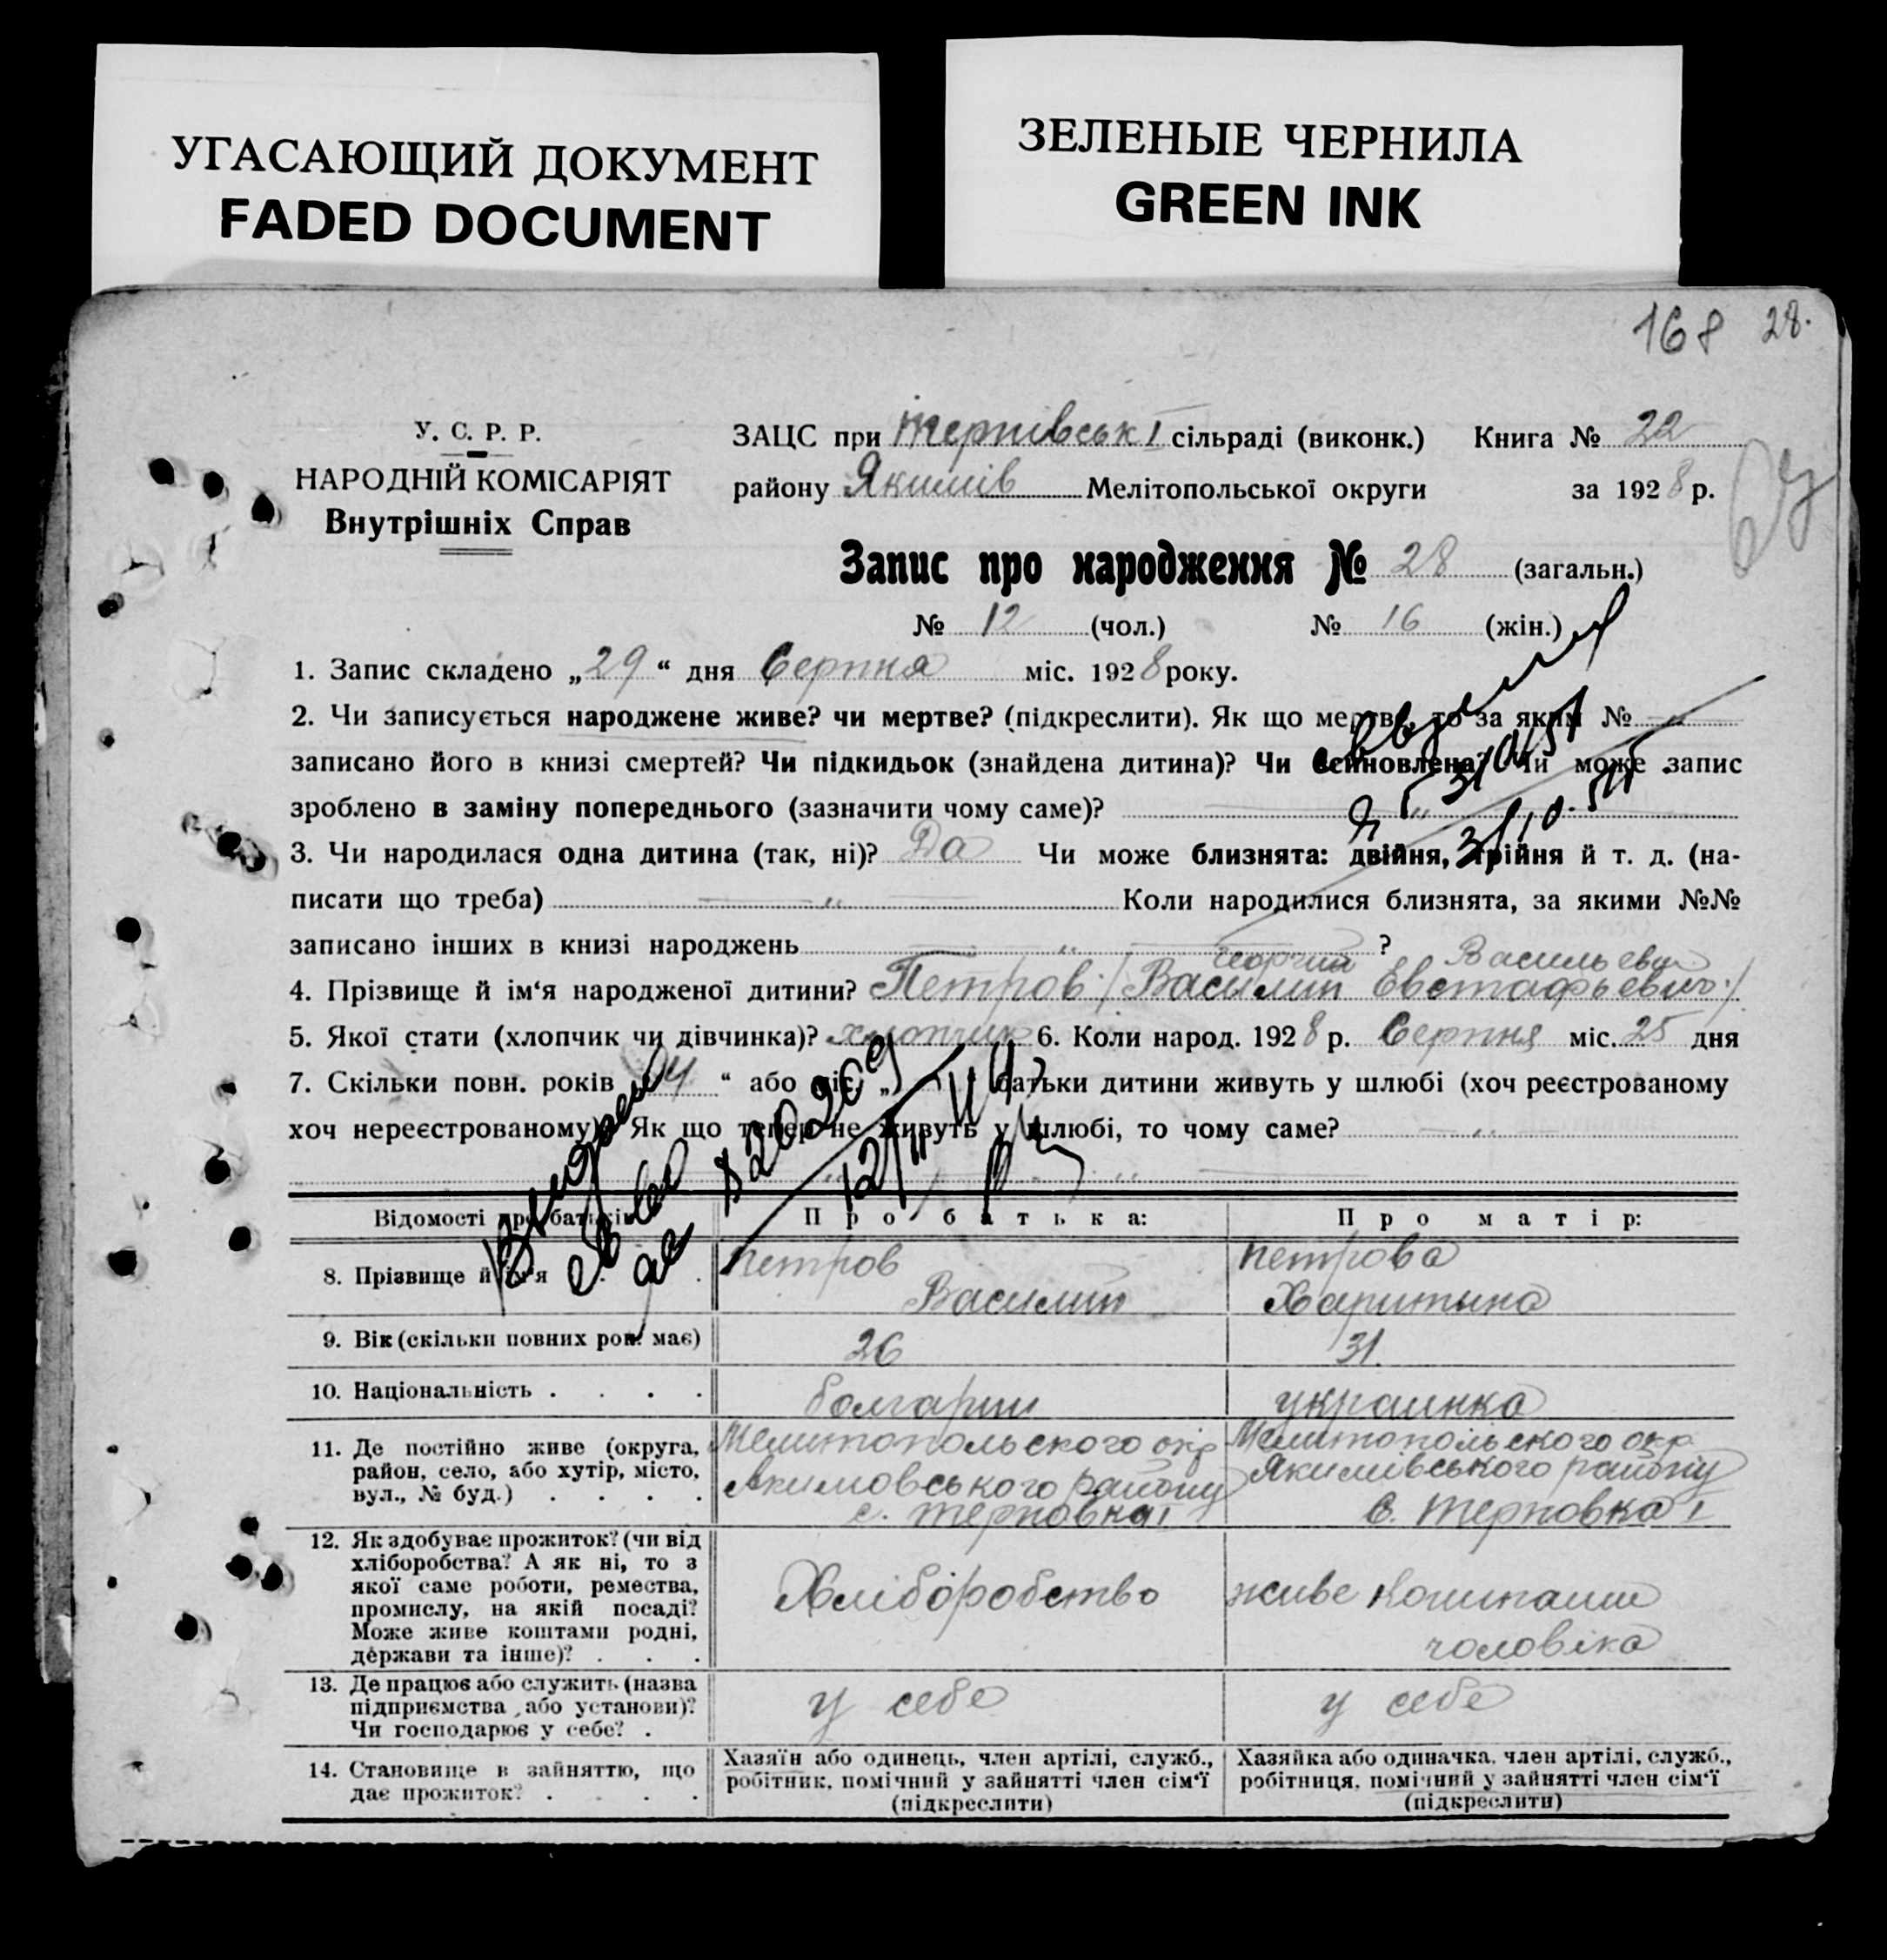 УГАСАЮЩИЙ ДОКУМЕНТ
FADED DOCUMENT
ЗЕЛЕНЫЕ ЧЕРНИЛА
GREEN INK
168 28.
У. С. Р. Р.
НАРОДНІЙ КОМІСАРІЯТ
Внутрішніх Справ
ЗАЦС при Терпівськ I сільраді (виконк.) Книга № 22
району Якимів Мелітопольської округи за 1928 р.
Запис про народження № 28 (загальн.)
№ 12 (чол.) № 16 (жін.)
1. Запис складено „29“ дня Серпня міс. 1928 року.
2. Чи записується народжене живе? чи мертве? (підкреслити). Як що мертве, то за яким №
записано його в книзі смертей? Чи підкидьок (знайдена дитина)? Чи всиновлена? Чи може запис
зроблено в заміну попереднього (зазначити чому саме)?
3. Чи народилася одна дитина (так, ні)? Да Чи може близнята: двійня, трійня й т. д. (на-
писати що треба) — „ — Коли народилися близнята, за якими №№
записано інших в книзі народжень — „ — ?
Георгий Васильевич
4. Прізвище й ім‘я народженої дитини? Петров /Василий Евстафьевич/
5. Якої стати (хлопчик чи дівчинка)? хлопчик 6. Коли народ. 1928 р. Серпня міс. 25 дня
7. Скільки повн. років „ “ або міс. „ “ батьки дитини живуть у шлюбі (хоч реєстрованому
хоч нереєстрованому)? Як що тепер не живуть у шлюбі, то чому саме? — „ —
Відомості про батьків Про батька: Про матір:
8. Прізвище й ім‘я Петров Василий Петрова Харитина
9. Вік (скільки повних рок. має) 26 31
10. Національність . . . . болгарин украинка
11. Де постійно живе (округа, район, село, або хутір, місто, вул., № буд.) . . . .
Мелитопольского окр Акимовського району с. Терповка I
Мелитопольского окр Якимівського району С. Терповка I
12. Як здобуває прожиток? (чи від хліборобства? А як ні, то з якої саме роботи, ремества, промислу, на якій посаді? Може живе коштами родні, держави та інше)? . . .
Хліборобство
живе коштами чоловіка
13. Де працює або служить (назва підприємства або установи)? Чи господарює у себе? .
у себе
у себе
14. Становище в зайняттю, що дає прожиток? . . . .
Хазяїн або одинець, член артілі, служб., робітник, помічний у зайнятті член сім‘ї (підкреслити)
Хазяйка або одиначка, член артілі, служб., робітниця, помічний у зайнятті член сім‘ї (підкреслити)